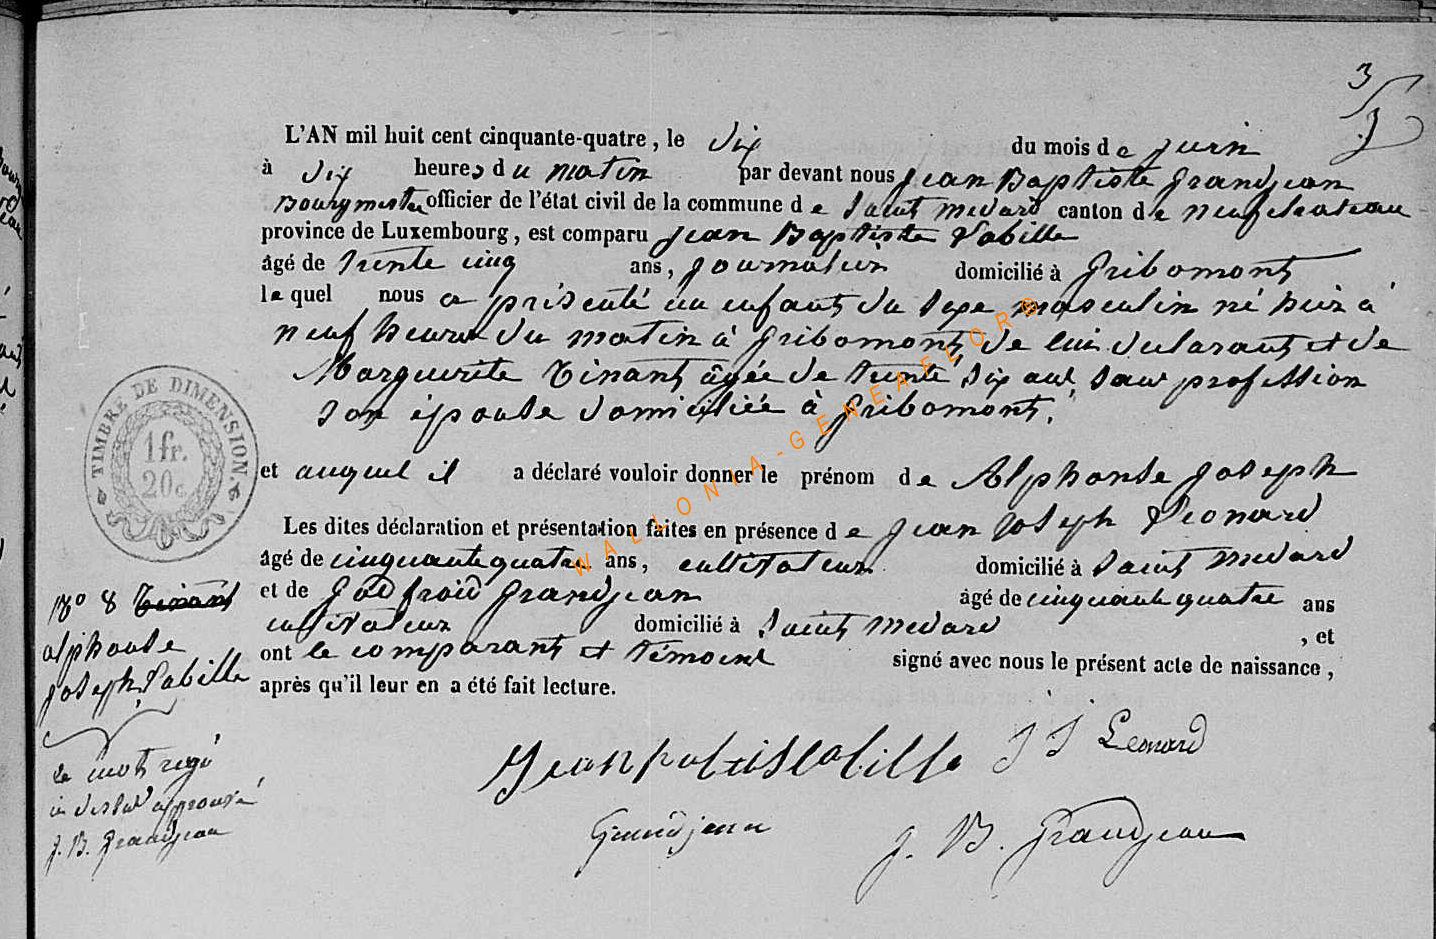 3
3
L'AN mil huit cent cinquante-quatre, le dix du mois de juin
à dix heures du matin par devant nous Jean Baptiste Grandjean
Bourgmestre officier de l'état civil de la commune de Saint Medard canton de neufchateau
province de Luxembourg, est comparu Jean Baptiste Labille
âgé de trente cinq ans, journalier domicilié à Gribomont
lequel nous a présenté un enfant du sexe masculin né hier à
neuf heures du matin à Gribomont de lui declarant et de
Marguerite Tinant âgée de trente six ans sans profession
son épouse domiciliée à Gribomont.
et auquel il a déclaré vouloir donner le prénom de Alphonse Joseph
Les dites déclaration et présentation faites en présence de Jean Joseph Leonard
âgé de cinquante quatre ans, cultivateur domicilié à Saint Medard
et de Godfroid Grandjean âgé de cinquante quatre ans
cultivateur domicilié à Saint Medard , et
ont le comparant et témoins signé avec nous le présent acte de naissance,
après qu'il leur en a été fait lecture.
TIMBRE DE DIMENSION.
1 fr.
20 c.
No 8 Tinant
alphonse
joseph Labille
le mot rayé
ci dessus approuvé
J. B. Grandjean
Jean patis labille J J Leonard
Grandjean J. B. Grandjean
WALLONIA-GENEAFEEORG